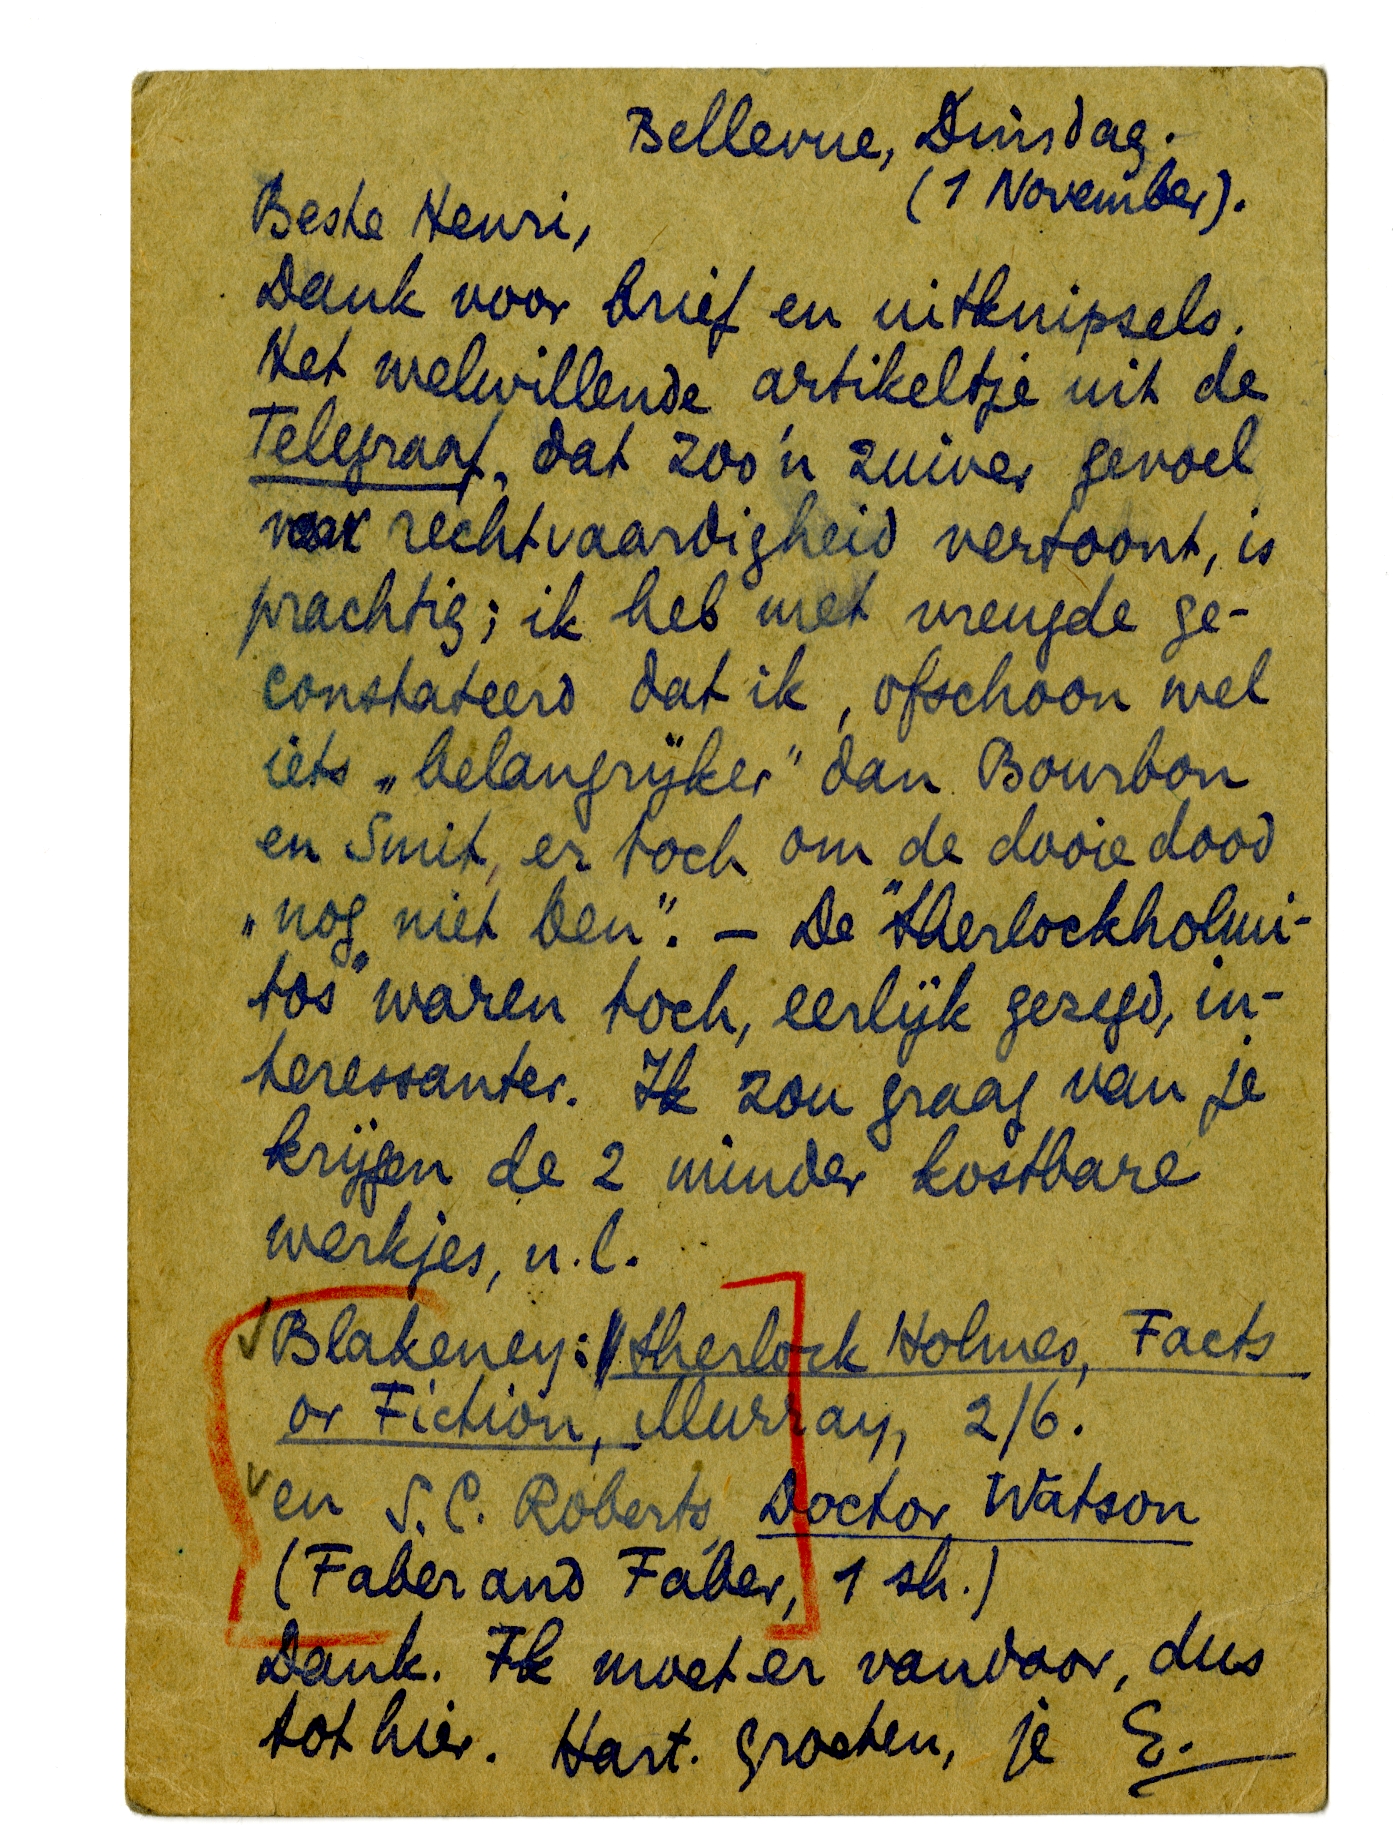 Bellevue, Dinsdag.
(1 November).
Beste Henri,
Dank voor brief en uitknipsels.
Het welwillende artikeltje uit de
Telegraaf, dat zoo'n zuiver gevoel
voor rechtvaardigheid vertoont, is
prachtig; ik heb met vreugde ge-
constateerd dat ik, ofschoon wel
iets „belangrijker" dan Bourbon
en Smit, er toch om de dooie dood
„nog niet ben". – De "Sherlockholmi-
tos" waren toch, eerlijk gezegd, in-
teressanter. Ik zou graag van je
krijgen de 2 minder kostbare
werkjes, n.l.
Blakeney: Sherlock Holmes, Facts
or Fiction, Murray, 2/6.
en S.C. Roberts, Doctor Watson
(Faber and Faber, 1 sh.)
Dank. Ik moet er vandoor, dus
tot hier. Hart. groeten, je E.